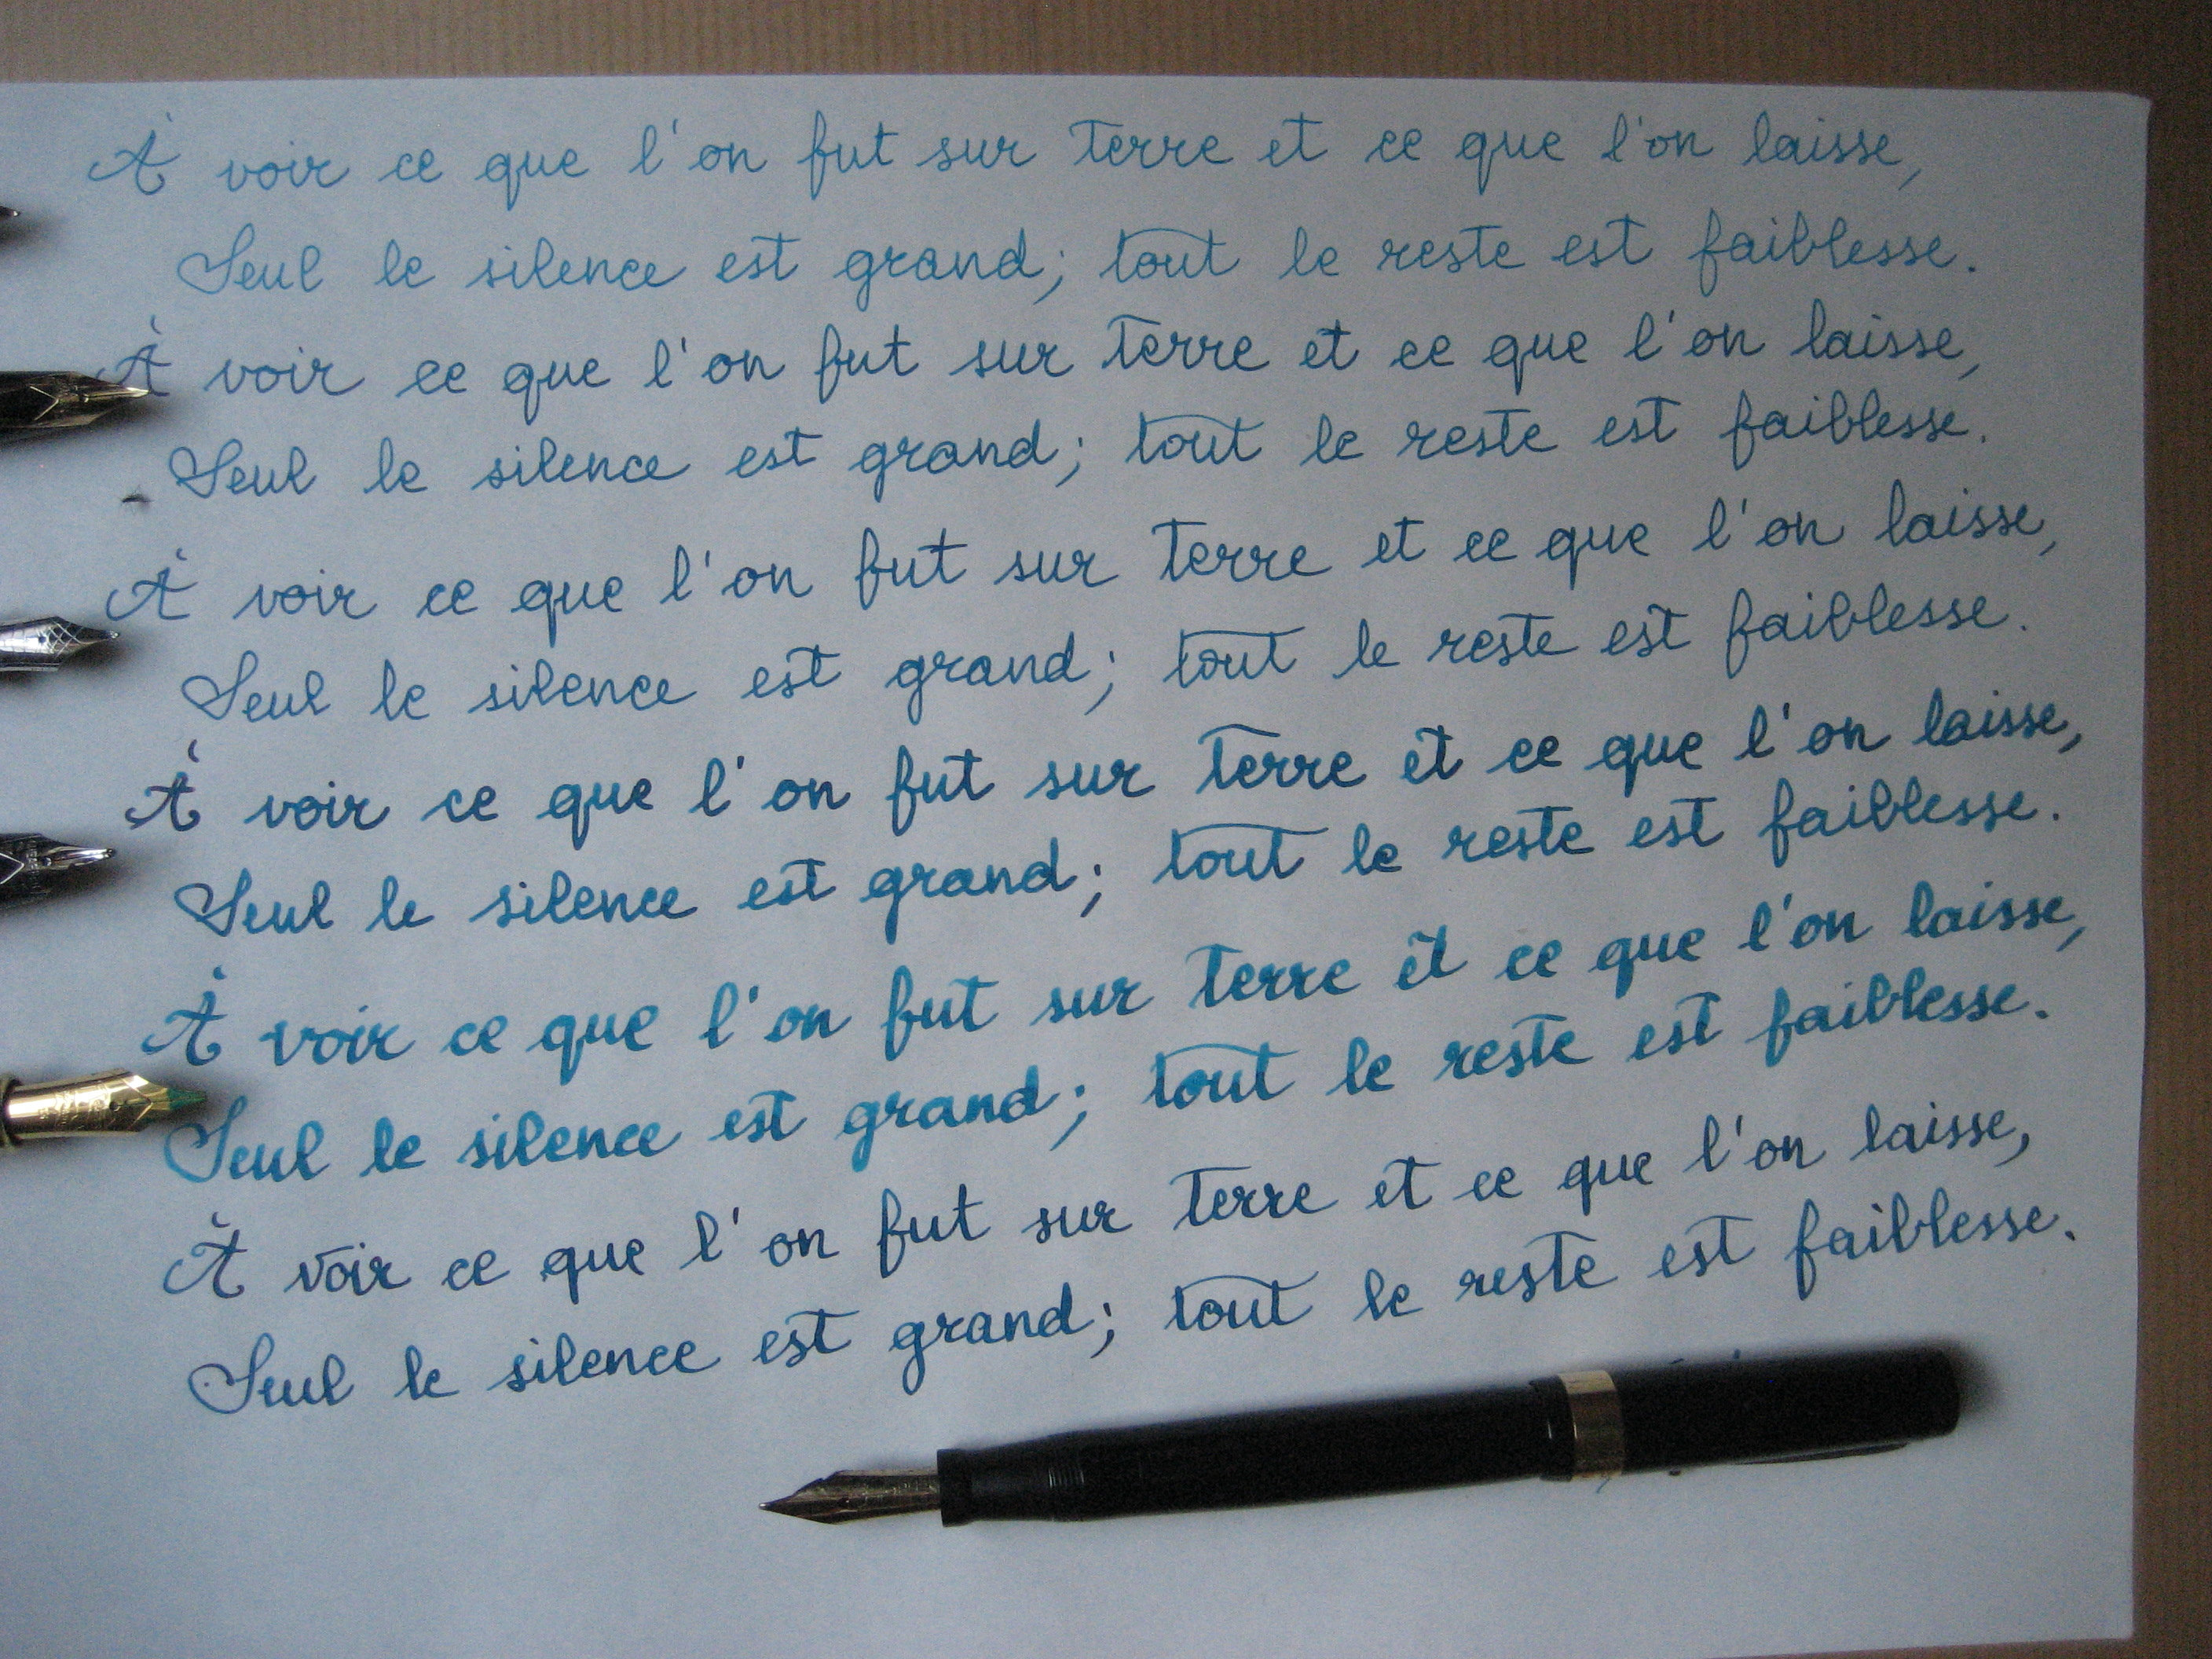 À voir ce que l'on fut sur terre et ce que l'on laisse,
Seul le silence est grand; tout le reste est faiblesse.
À voir ce que l'on fut sur terre et ce que l'on laisse,
Seul le silence est grand; tout le reste est faiblesse.
À voir ce que l'on fut sur terre et ce que l'on laisse,
Seul le silence est grand; tout le reste est faiblesse.
À voir ce que l'on fut sur terre et ce que l'on laisse,
Seul le silence est grand; tout le reste est faiblesse.
À voir ce que l'on fut sur terre et ce que l'on laisse,
Seul le silence est grand; tout le reste est faiblesse.
À voir ce que l'on fut sur terre et ce que l'on laisse,
Seul le silence est grand; tout le reste est faiblesse.